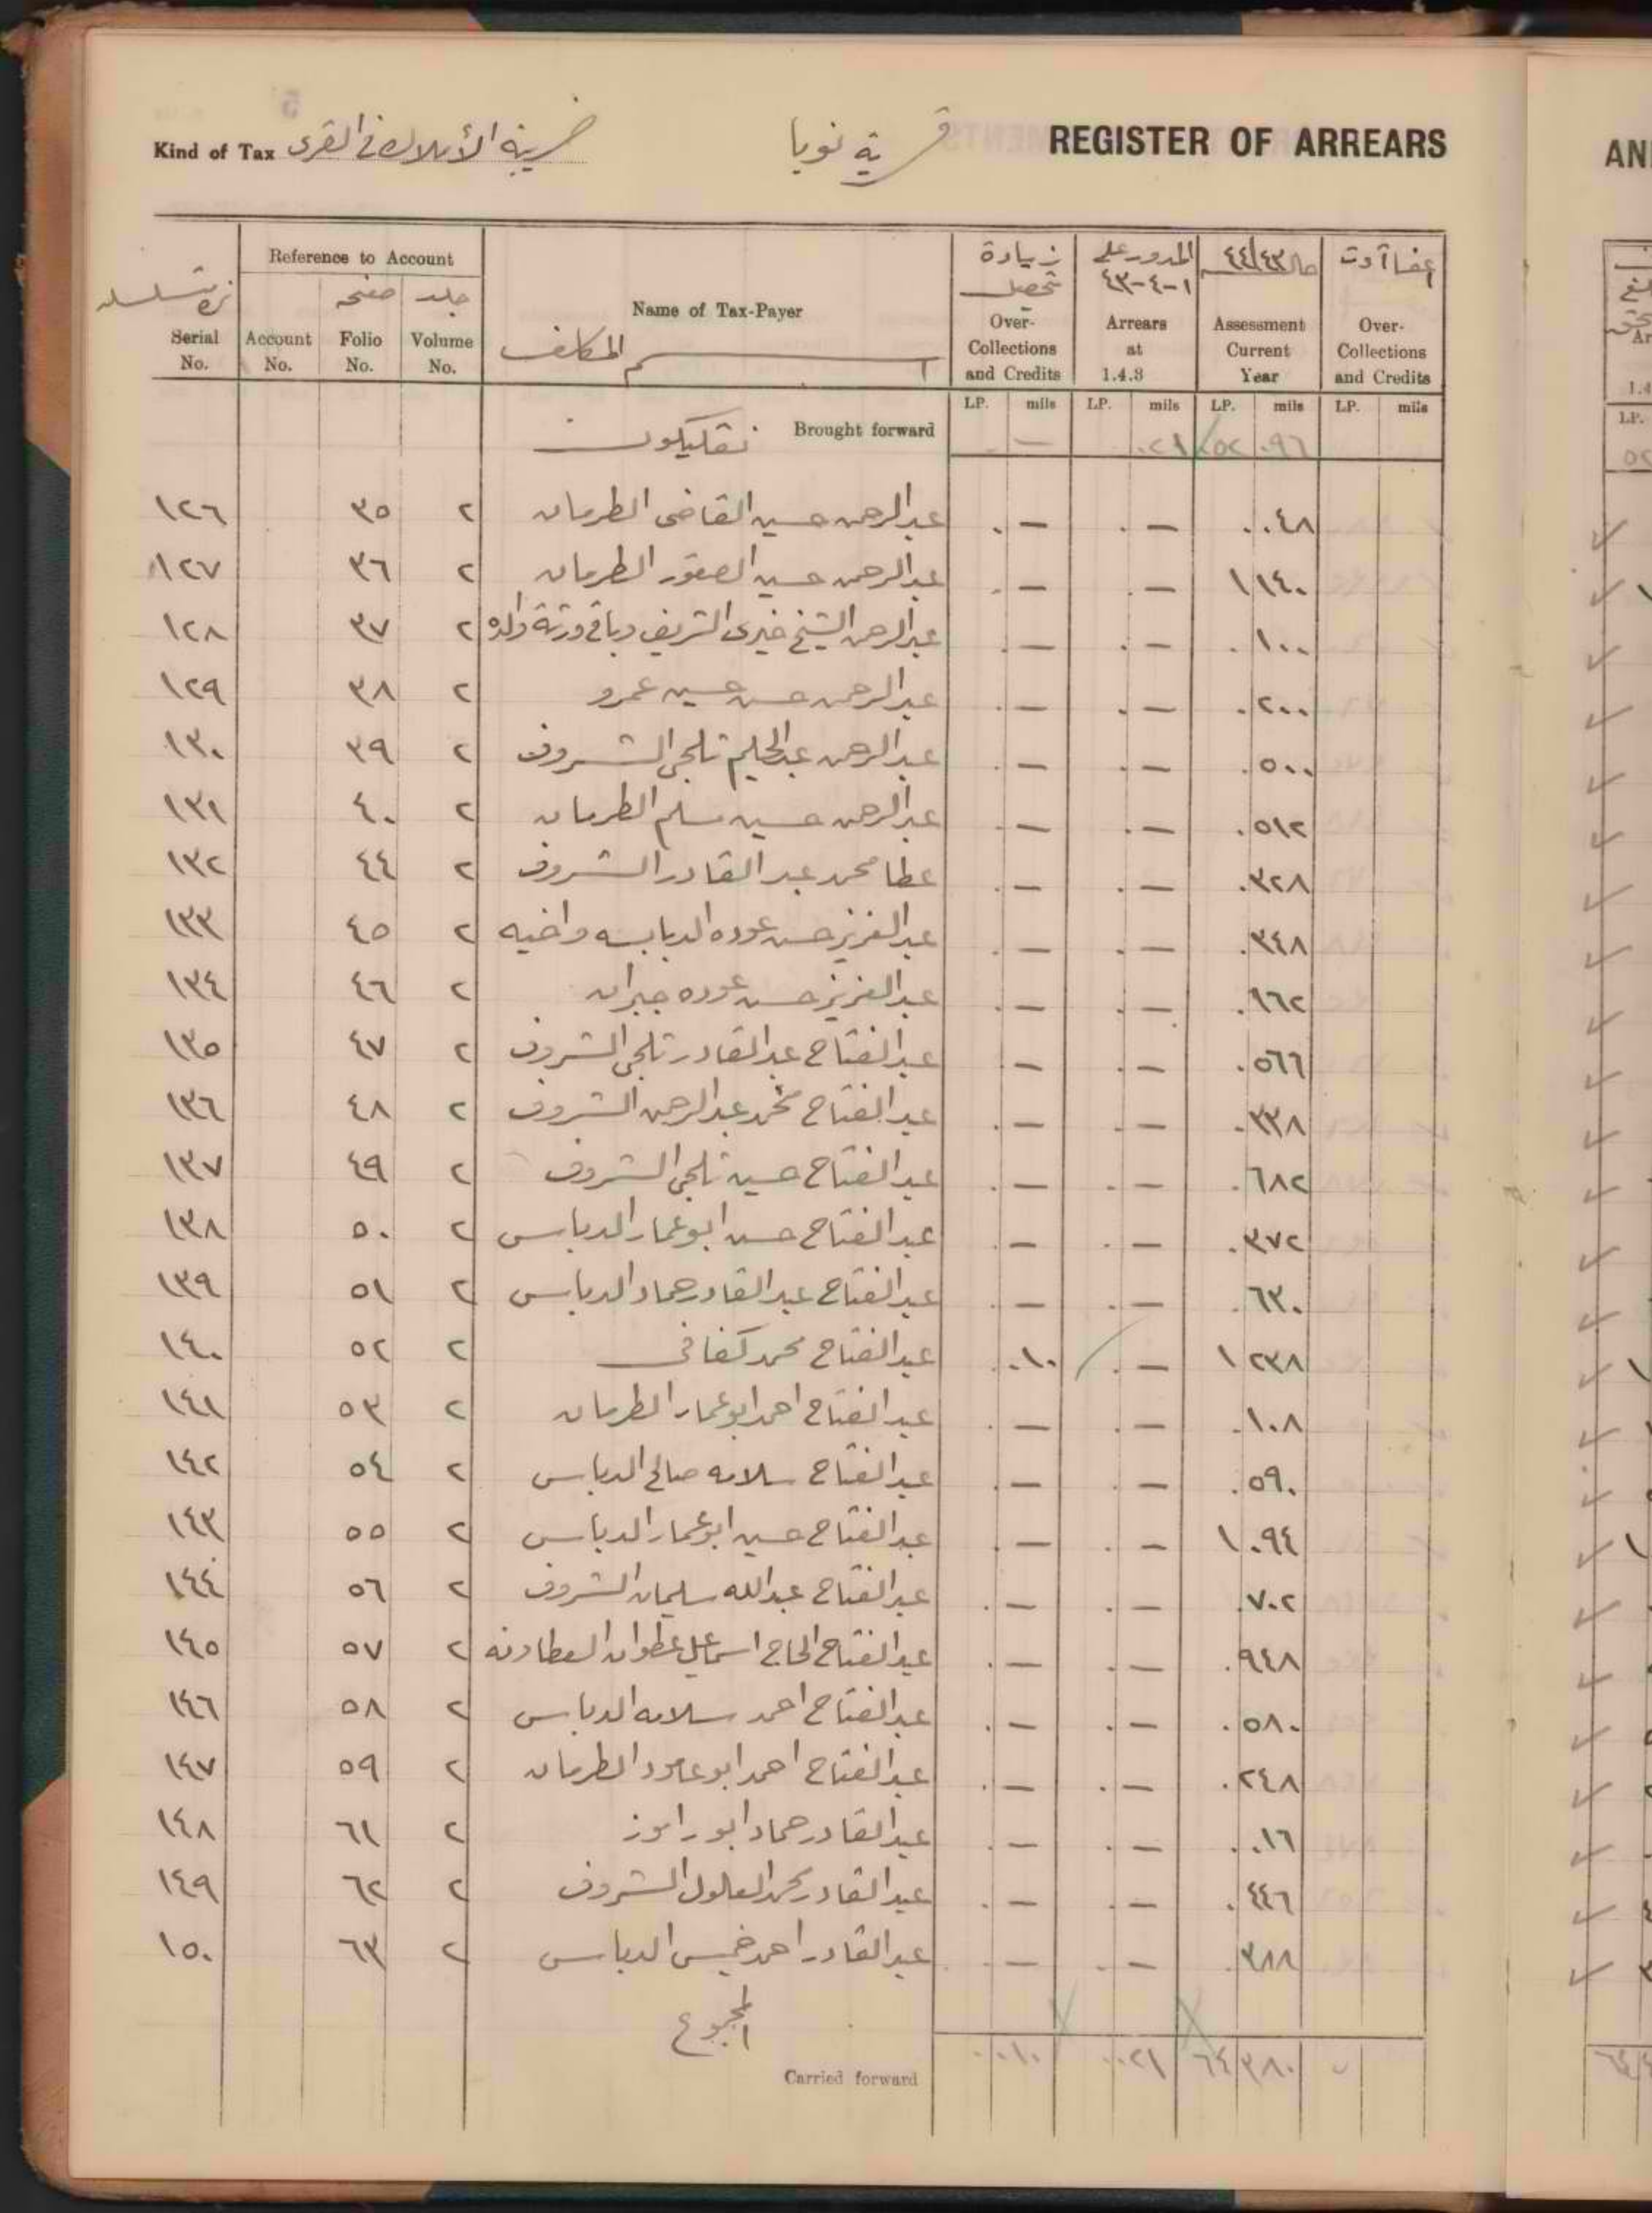 Kind of Tax ضريبة الأملاك في القرى قرية نوبا REGISTER OF ARREARS
Reference to Account
زيادة تحصيل المدور على ١-٤-٤٣ حال ٤٤/٤٣ اعفاآت
صفحه جلد
Name of Tax-Payer
اسم المكلف
Serial No. Account No. Folio No. Volume No. Over-Collections and Credits Arrears at 1.4.3 Assessment Current Year Over-Collections and Credits
LP. mils LP. mils LP. mils LP. mils
Brought forward — ٠٢١ ٥٢ ٠٩٦
١٢٦ ٣٥ ٢ عبدالرحمن حسين القاضى الطرمان . — . — . ٠٤٨
١٢٧ ٣٦ ٢ عبدالرحمن حسين الصقور الطرمان . — . — ١ ١٤٠
١٢٨ ٣٧ ٢ عبدالرحمن الشيخ خيرى الشريف وباقي ورثة والده . — . — . ١٠٠
١٢٩ ٣٨ ٢ عبدالرحمن حسن حسين عمرو . — . — . ٢٠٠
١٣٠ ٣٩ ٢ عبدالرحمن عبدالحليم ثلجى الشروف . — . — . ٥٠٠
١٣١ ٤٠ ٢ عبدالرحمن حسين مسلم الطرمان . — . — . ٥١٢
١٣٢ ٤٤ ٢ عطا محمد عبدالقادر الشروف . — . — . ٣٢٨
١٣٣ ٤٥ ٢ عبدالعزيز حسن عوده الدبابسه واخيه . — . — . ٣٤٨
١٣٤ ٤٦ ٢ عبدالعزيز حسن عوده جبران . — . — . ٩٦٢
١٣٥ ٤٧ ٢ عبدالفتاح عبدالقادر ثلجى الشروف . — . — . ٥٦٦
١٣٦ ٤٨ ٢ عبدالفتاح محمد عبدالرحمن الشروف . — . — . ٣٣٨
١٣٧ ٤٩ ٢ عبدالفتاح حسين ثلجى الشروف . — . — . ٦٨٢
١٣٨ ٥٠ ٢ عبدالفتاح حسن ابوعمار الدباس . — . — . ٣٧٢
١٣٩ ٥١ ٢ عبدالفتاح عبدالقادر حماد الدباس . — . — . ٦٣٠
١٤٠ ٥٢ ٢ عبدالفتاح محمد كفافى . ٠١٠ . — ١ ٢٣٨
١٤١ ٥٣ ٢ عبدالفتاح احمد ابوعمار الطرمان . — . — . ١٠٨
١٤٢ ٥٤ ٢ عبدالفتاح سلامه صالح الدباس . — . — . ٥٩٠
١٤٣ ٥٥ ٢ عبدالفتاح حسين ابوعمار الدباس . — . — ١ ٠٩٤
١٤٤ ٥٦ ٢ عبدالفتاح عبدالله سليمان الشروف . — . — . ٧٠٢
١٤٥ ٥٧ ٢ عبدالفتاح الحاج اسماعيل عطوان العطاونه . — . — . ٩٤٨
١٤٦ ٥٨ ٢ عبدالفتاح احمد سلامه الدباس . — . — . ٥٨٠
١٤٧ ٥٩ ٢ عبدالفتاح احمد ابوعامود الطرمان . — . — . ٢٤٨
١٤٨ ٦١ ٢ عبدالقادر حماد ابوراموز . — . — . ٠١٦
١٤٩ ٦٢ ٢ عبدالقادر محمد العلول الشروف . — . — . ٤٤٦
١٥٠ ٦٣ ٢ عبدالقادر احمد خميس الدباس . — . — . ٣٨٨
المجموع
Carried forward . ٠١٠ . ٠٢١ ٦٤ ٣٨٠